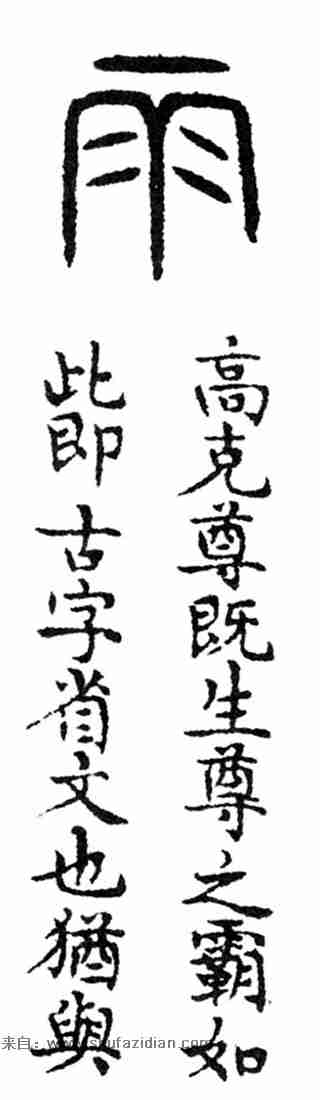 雨
高克尊既生尊之霸如
此即古字省文也猶與
来自：www.shufazidian.com